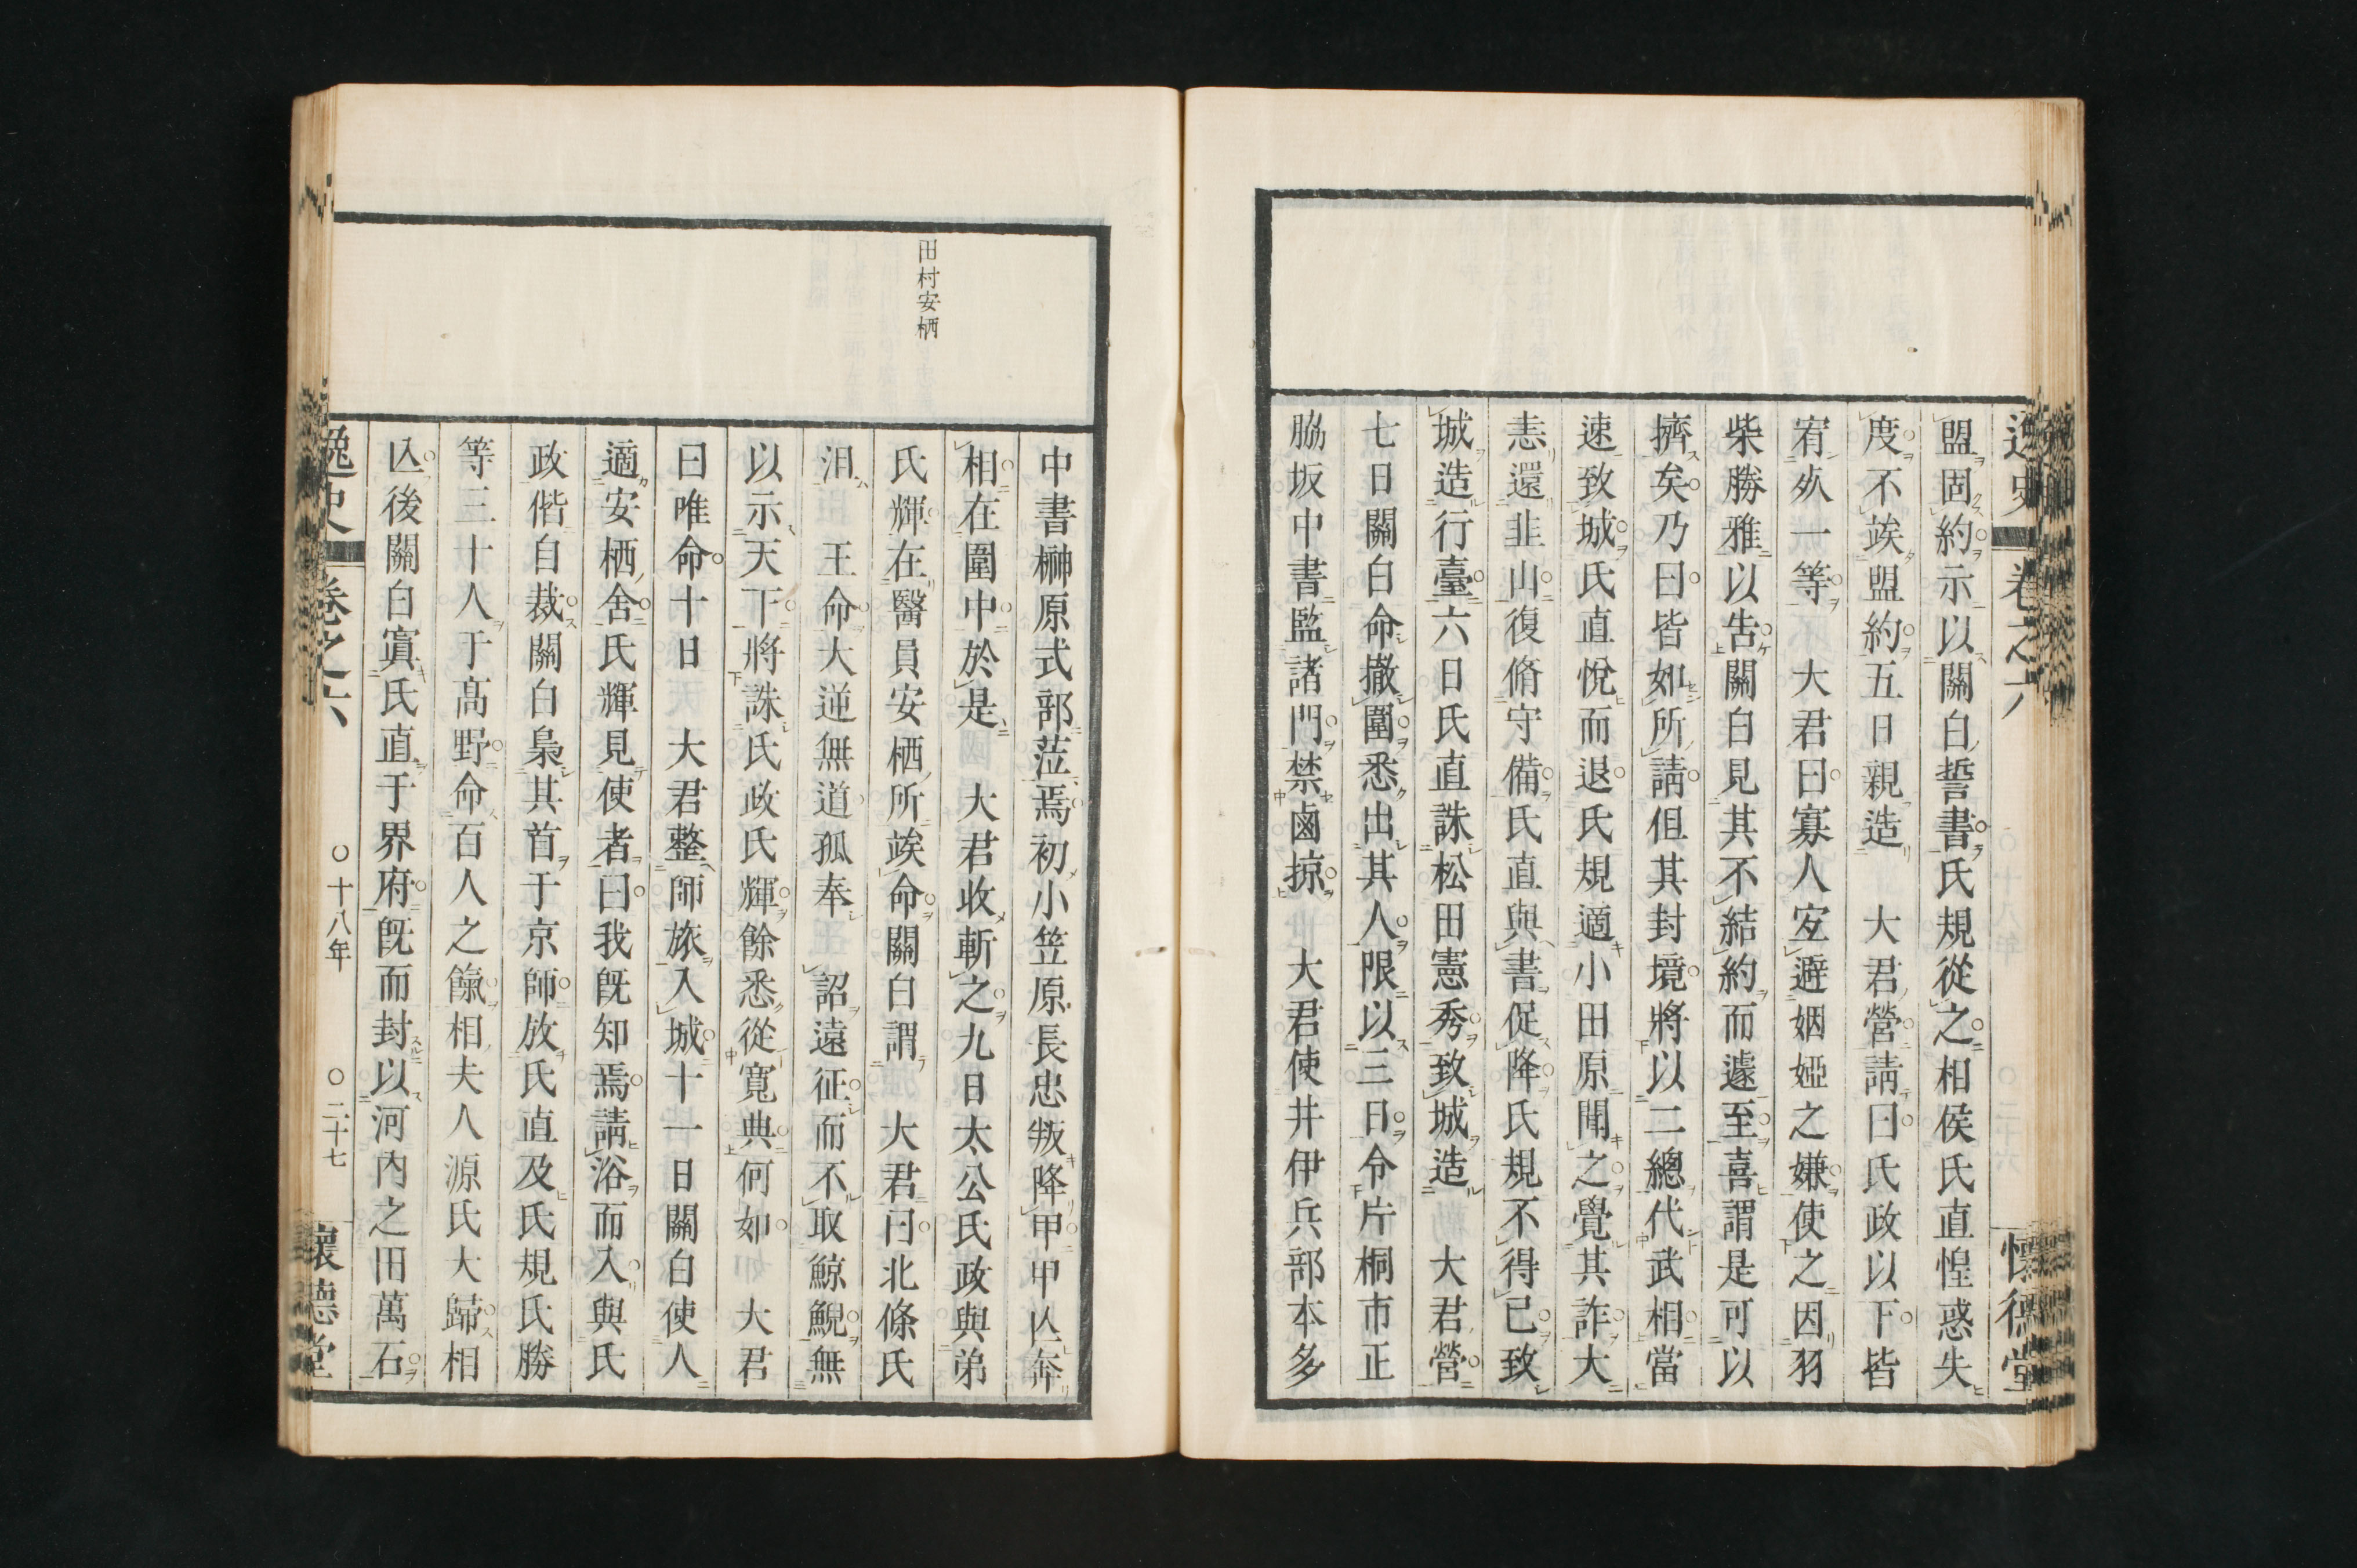 逸史 卷之六 懷德堂
盟固約示以關白誓書氏規從之相侯氏直惶惑失
度不竢盟約五日親造 大君營請曰氏政以下皆
宥㱕一等 大君曰寡人㝎避姻婭之嫌使之因羽
柴勝雅以告關白見其不結約而遽至喜謂是可以
擠矣乃曰皆如所請但其封境將以二總代武相當
速致城氏直悅而退氏規適小田原聞之覺其詐大
恚還韭山復脩守備氏直與書促降氏規不得已致
城造行臺六日氏直誅松田憲秀致城造 大君營
七日關白命撤圍悉出其人限以三日令片桐市正
脇坂中書監諸門禁鹵掠 大君使井伊兵部本多
中書榊原式部涖焉初小笠原長忠叛降甲甲亾奔
相在圍中於是 大君收斬之九日太公氏政與弟
氏輝在醫員安栖所竢命關白謂 大君曰北條氏
汨 王命大逆無道孤奉 詔遠征而不取鯨鯢無
以示天下將誅氏政氏輝餘悉從寬典何如 大君
曰唯命十日 大君整師旅入城十一日關白使人
適安栖舍氏輝見使者曰我旣知焉請浴而入與氏
政偕自裁關白梟其首于京師放氏直及氏規氏勝
等三十人于高野命百人之餼相夫人源氏大歸相
亾後關白寘氏直于界府旣而封以河內之田萬石
田村安栖
逸史 卷之六 〇十八年 〇二十七 懷德堂